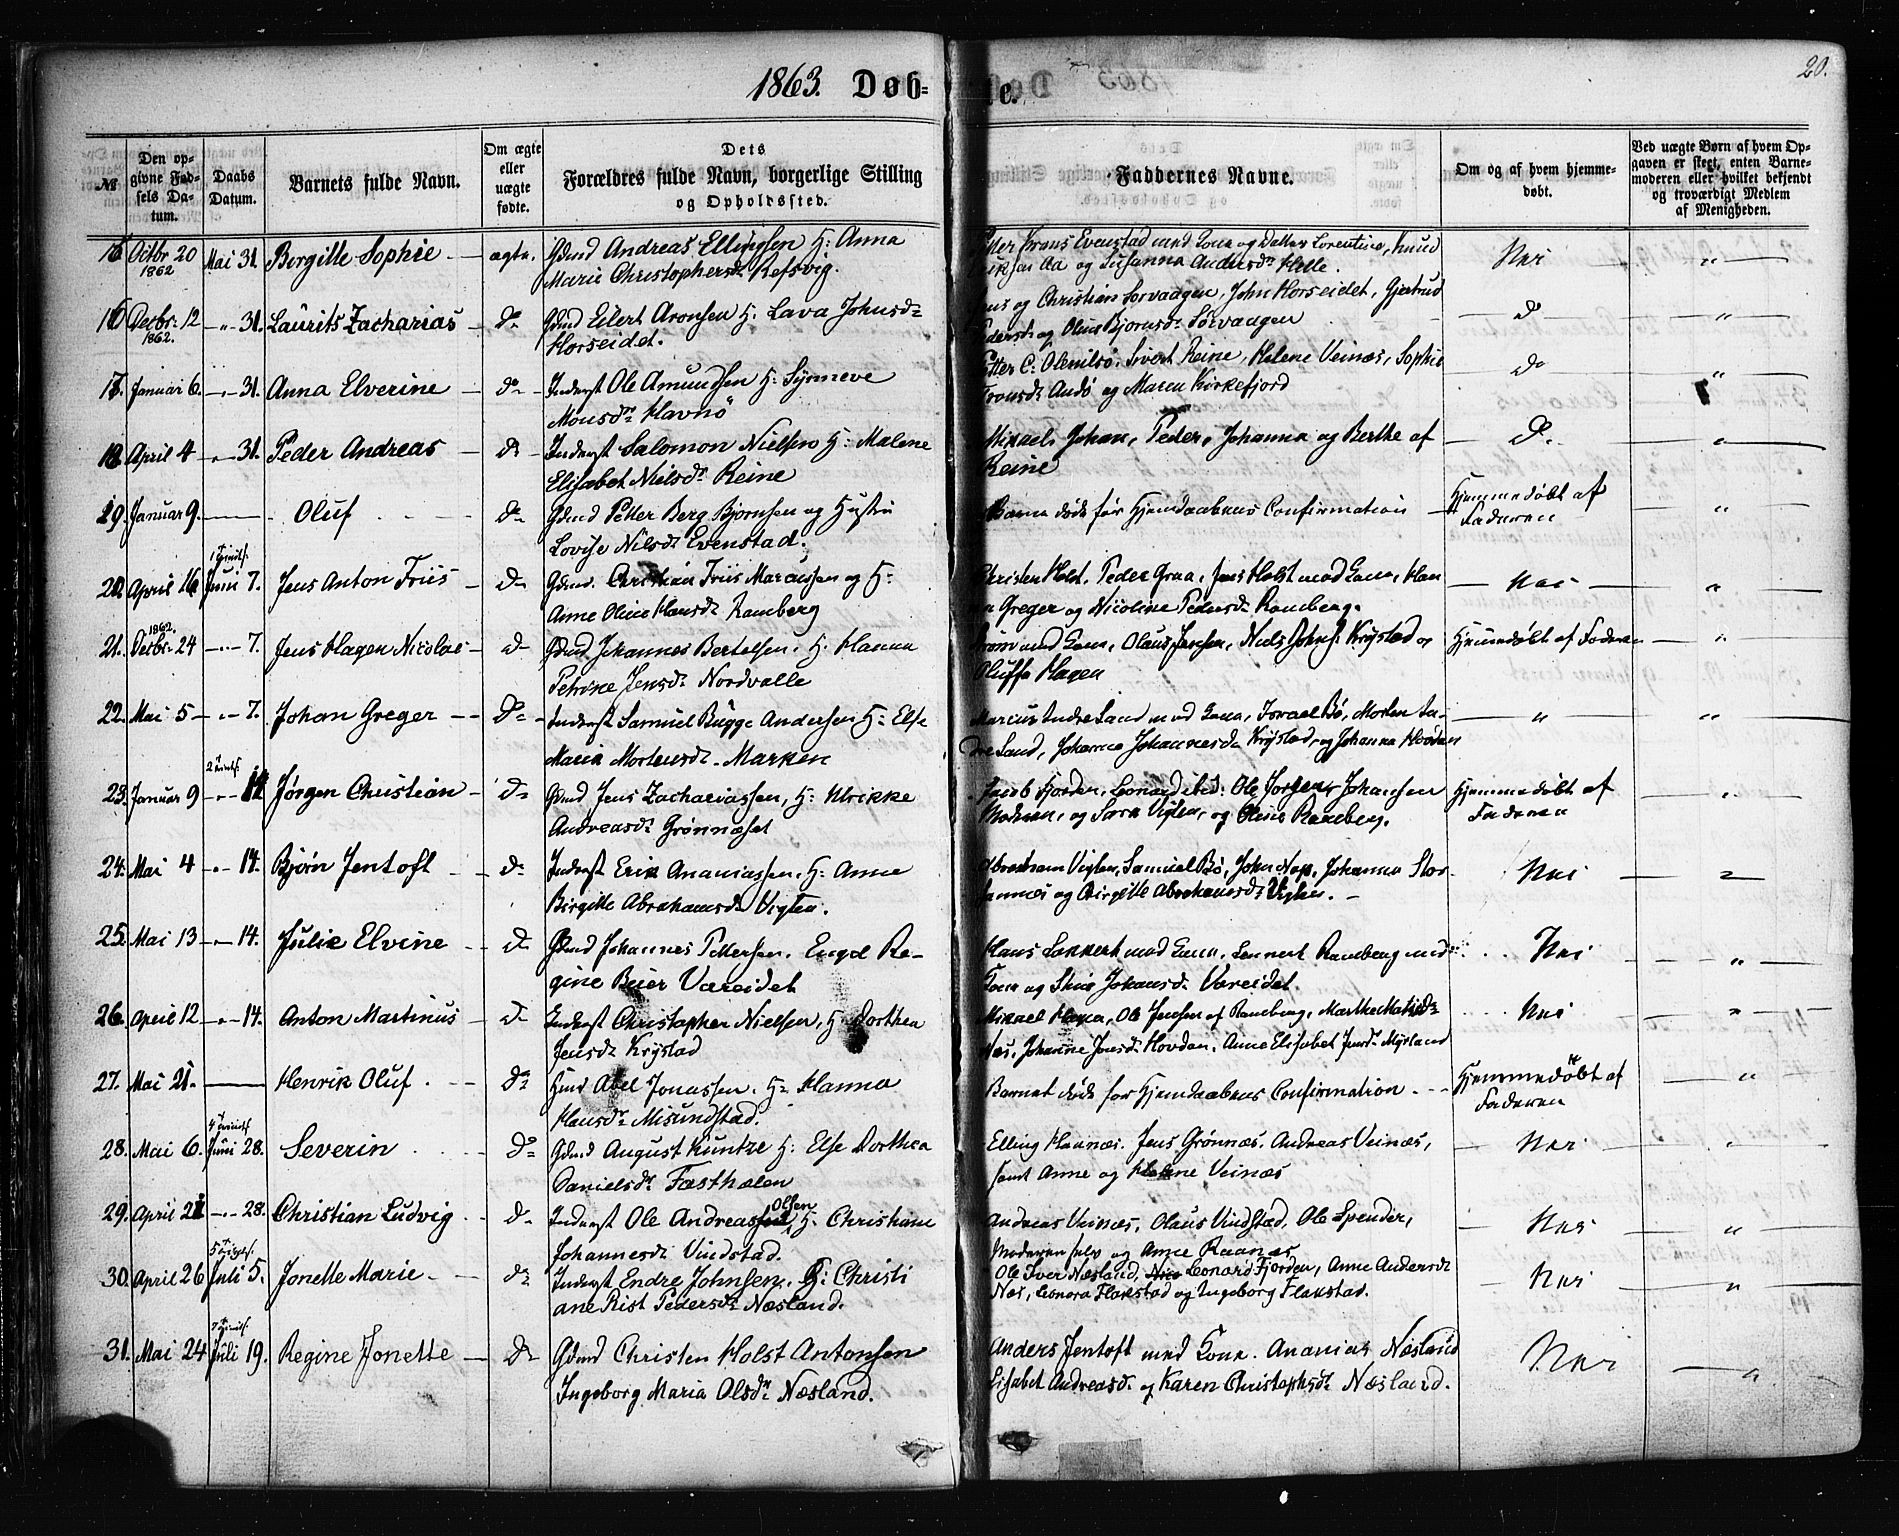 1863. Døb=
te.
20.
№
Den opgivne Fødsels Datum.
Daabs Datum.
Barnets fulde Navn.
Om ægte eller uægte fødte.
Dets Forældres fulde Navn, borgerlige Stilling og Opholdssted.
Faddernes Navne.
Om og af hvem hjemmedøbt.
Ved uægte Børn af hvem Opgaven er skeet, enten Barnemoderen eller hvilket bekjendt og troværdigt Medlem af Menigheden.
Octbr 20 1862 Mai 31. Bergitte Sophie — ægte. Gdmd Andreas Ellingsen H: Anna
Marie Christophersdr Refsvig.
Evenstad med Kona og Datter Lorentine, Knud
Aa og Susanna Andersdr Helle. Nei "
16 Decbr: 12 1862. — " 31. Laurits Zacharias — do Gdmd Eilert Aronsen H: Lava Johnsdr
Horseidet.
og Christian Sorvaagen, John Horseidet, Gjertrud
og Oline Bjornsdr Sörvaagen do "
17. Januar 6. — " — 31. Anna Elverine — do Inderst Ole Amundsen H: Synneve
Monsdr Havnö
Petter C: Olenilsö, Sivert Reine, Helene Veinæs, Sophie
Andö og Maren Kirkefjord do "
18. April 4 " 31. Peder Andreas — do Inderst Salomon Nielsen H: Malene
Elisabet Nielsdr Reine
Mikael, Johan, Peder, Johanna og Berthe af
Reine do "
19. Januar 9. — Oluf do Gdmd Petter Berg Bjornsen og Hustru
Lovise Nilsdr Evenstad.
Barnet døde før Hjemdaabens Confirmation Hjemmedøbt af
Faderen "
20. April 16 Juni 7. Jens Anton Friis — do Gdmd. Christian Friis Marcussen og H:
Anne Oline Hansdr Ramberg
Christen Holst, Peder Graa, Jens Holst med Kona, Han
na Greger og Nicoline Pedersdr Ramberg. Nei "
21. 1862. Decbr 24 — " — 7. Jens Hagen Nicolai — do Gdmd Johannes Bertelsen, H: Hanna
Petrine Jensdr Nordvalle
med Kona, Olaus Jensen, Niels Johns: Krystad og
Oluffa Hagen Hjemmedøbt af Faderen "
22. Mai 5 — " — 7. Johan Greger — do Inderst Samuel Bugge Andersen H: Else
Maria Mortensdr Marken
Marcus Indresand med Kona, Israel Bö, Morten In-
dresand, Johanna Johannesdr Krystad, og Johanna Hovdan " "
23. Januar 9 2 Trinits. — " — 14 Jørgen Christian — do Gdmd Jens Zachariassen, H: Ulrikke
Andreasdr Grønnæset
Jacob Fjorden, Leonard ibid: Ole Jorgen Johansen
Moderen, og Sara Vigten, og Oline Ramberg. Hjemmedøbt af
Faderen "
24. Mai 4 — " — 14. Bjørn Jentoft do Inderst Erik Ananiassen, H: Anne
Birgitte Abrahamsdr Vigten.
Abraham Vigten, Samuel Bö, John Nap, Johanna Stor-
og Birgitte Abrahamsdr Vigten. Nei "
25. Mai 13 — " — 14. Julie Elvine do Gdmd Johannes Pettersen. Engel Re-
gine Beier Væreidet
Hans Lennert med Kona, Lennert Ramberg med
Kona og Stine Johansdr Væreidet. Nei "
26. April 12 — " — 14. Anton Martinus — do Inderst Christopher Nielsen, H: Dorthea
Jensdr Krystad
Mikael Hana, Ole Jensen af Ramberg, Marthe Mathisdr
Næs, Johanne Jonsdr Hovdan, Anne Elisabet Jensdr Myrland Nei "
27. Mai 21. — Henrik Oluf do Hmd Abel Jonassen. H: Hanna
Hansdr Misundstad.
Barnet døde før Hjemdaabens Confirmation Hjemmedøbt af
Faderen "
28. Mai 6. 4 Trinits Juni 28. Severin do Gdmd August Kuntze H: Else Dorthea
Danielsdr Fæsthælen
Elling Havnæs. Jens Grönnæs. Andreas Veinæs,
samt Anne og Helene Veinæs Nei "
29. April 21 — " — 28. Christian Ludvig do Inderst Ole Andreas Olsen H: Christiane
Johannesdr Vindstad.
Andreas Veinæs, Olaus Vindstad, Ole Spender,
Moderen selv og Anne Raanæs Nei "
30. April 26 Juli 5. Jonette Marie do Inderst Endre Johnsen. H: Christi
ane Rist Pedersdr Næsland.
Ole Iver Næsland, Leonard Fjorden, Anne Andersdr
Næs, Leonora Flakstad og Ingeborg Flakstad. Nei "
31. Mai 24 7 Trinits. Juli 19. Regine Jonette — do Gdmd Christen Holst Antonsen
Ingeborg Maria Olsdr Næsland.
Anders Jentoft med Kona. Ananias Næsland
Elisabet Andreasdr og Karen Christophsdr Næsland. Nei "